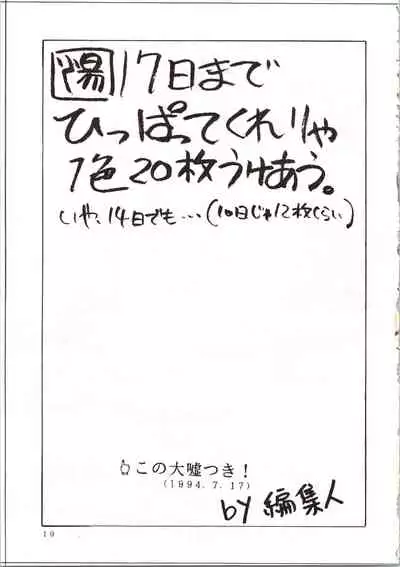 陽 17日まで
ひっぱってくれりゃ
1色20枚うけあう。
いや、14日でも…(10日じゃ12枚くらい)
この大嘘つき!
(1994.7.17)
by 編集人
10